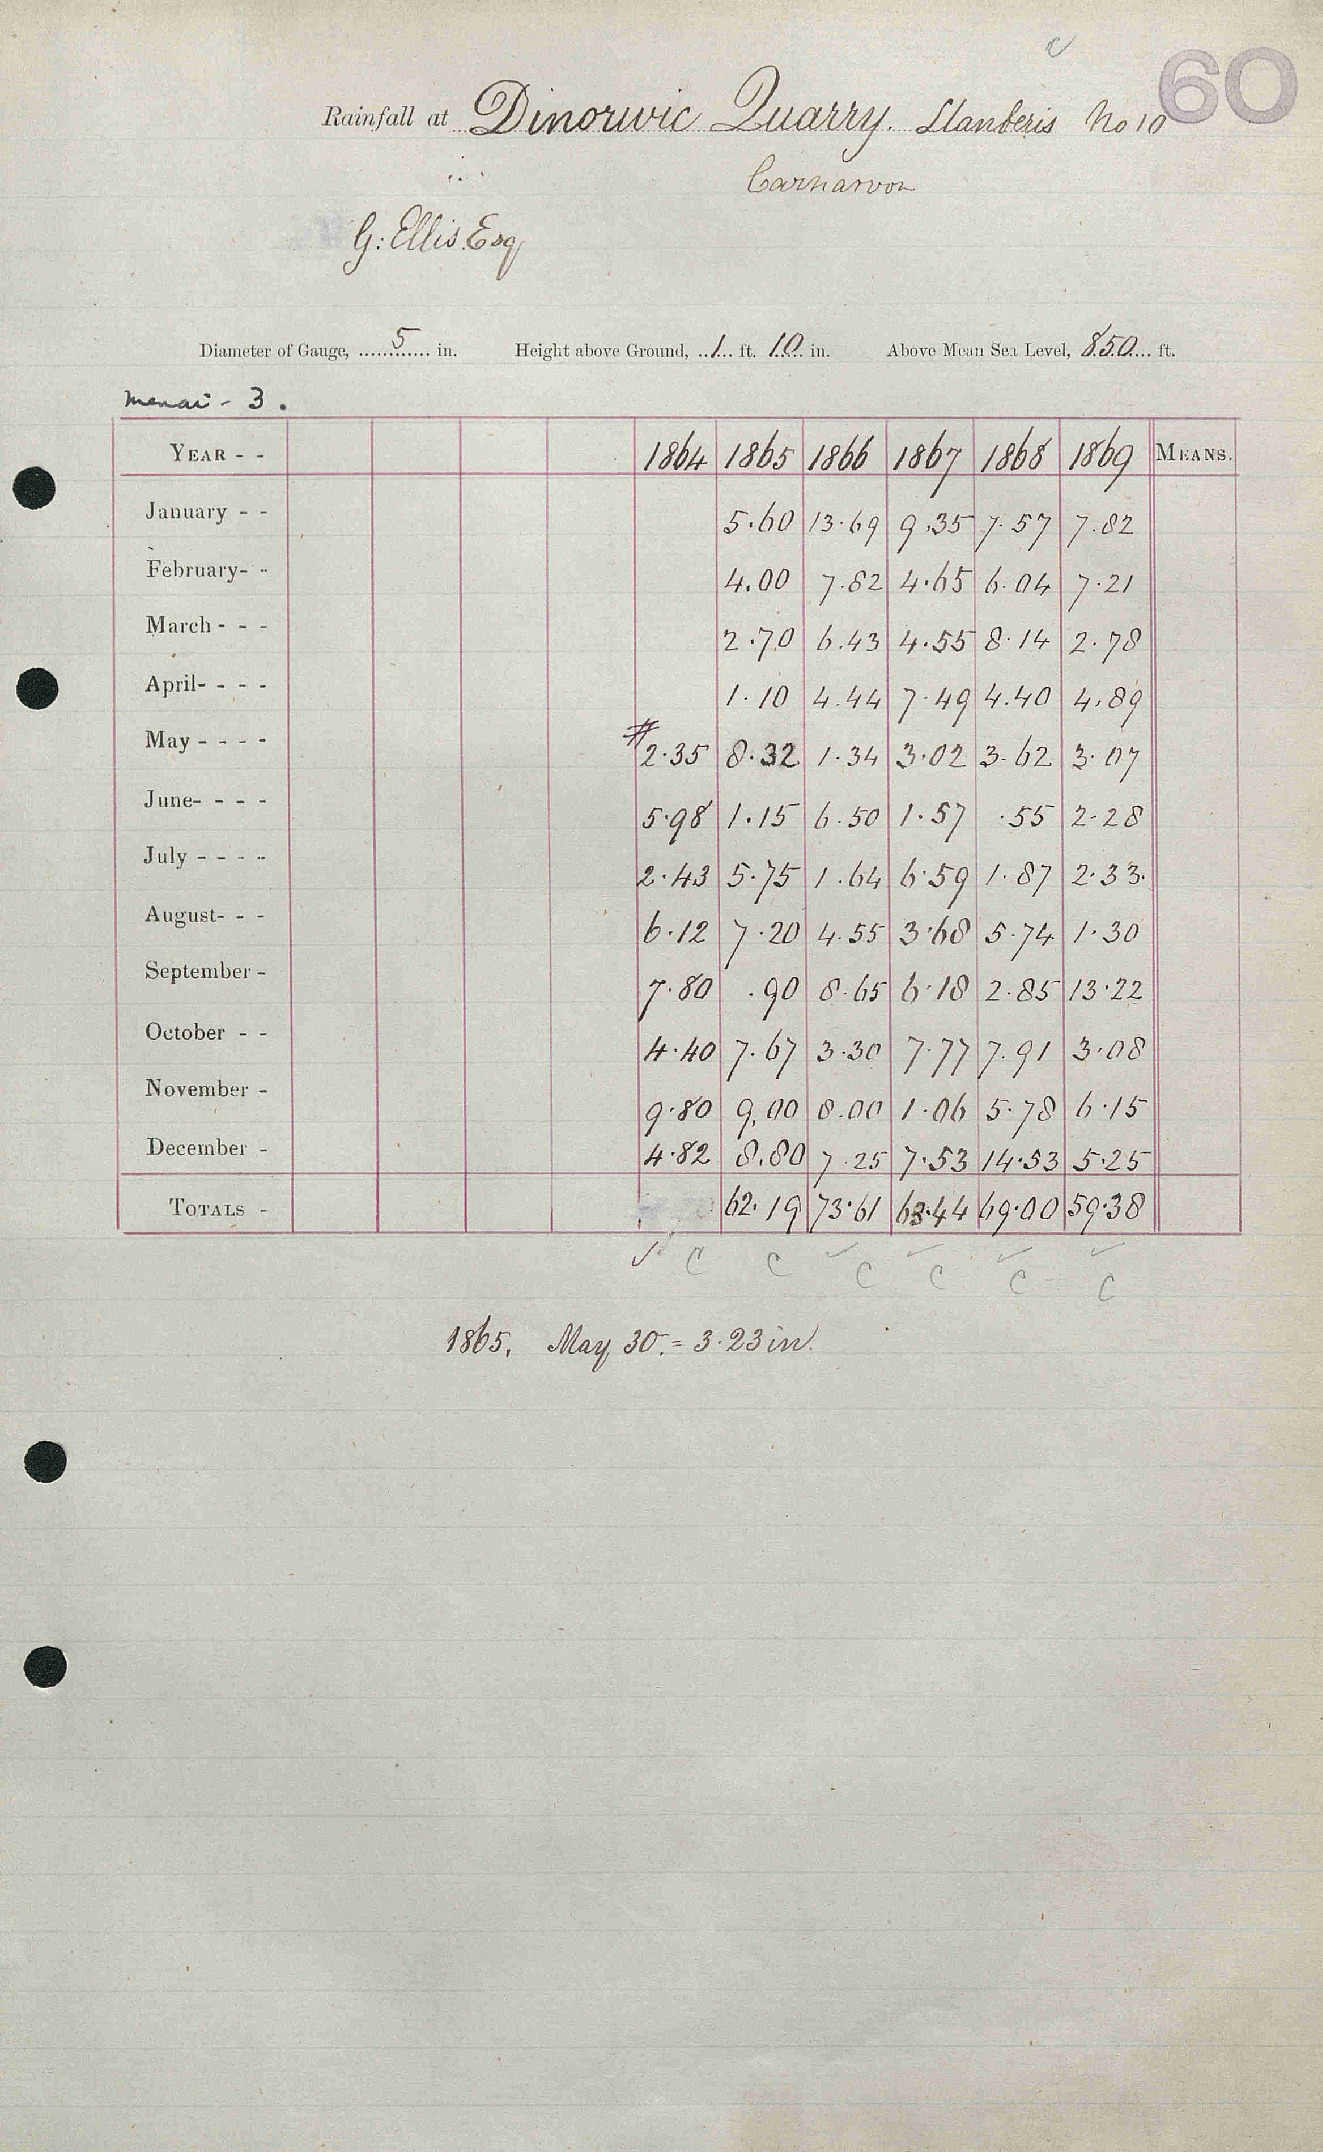 c
60
Rainfall at Dinorwic Quarry. Llanberis No 10
Carnarvon
G: Ellis. Esq
Diameter of Gauge, 5 in. Height above Ground, 1 ft. 10 in. Above Mean Sea Level, 850 ft.
Menai - 3.
YEAR - - 1864 1865 1866 1867 1868 1869 MEANS.
January - - 5.60 13.69 9.35 7.57 7.82
February- - 4.00 7.82 4.65 6.04 7.21
March - - - 2.70 6.43 4.55 8.14 2.78
April- - - - 1.10 4.44 7.49 4.40 4.89
May - - - - # 2.35 8.32 1.34 3.02 3.62 3.07
June- - - - 5.98 1.15 6.50 1.57 .55 2.28
July - - - - 2.43 5.75 1.64 6.59 1.87 2.33.
August- - - 6.12 7.20 4.55 3.68 5.74 1.30
September - 7.80 .90 8.65 6.18 2.85 13.22
October - - 4.40 7.67 3.30 7.77 7.91 3.08
November - 9.80 9,00 8.00 1.06 5.78 6.15
December - 4.82 8.80 7.25 7.53 14.53 5.25
TOTALS - 62.19 73.61 63.44 69.00 59.38
✓ c c ✓ c ✓ c ✓ c ✓ c
1865, May 30. = 3.23 in.